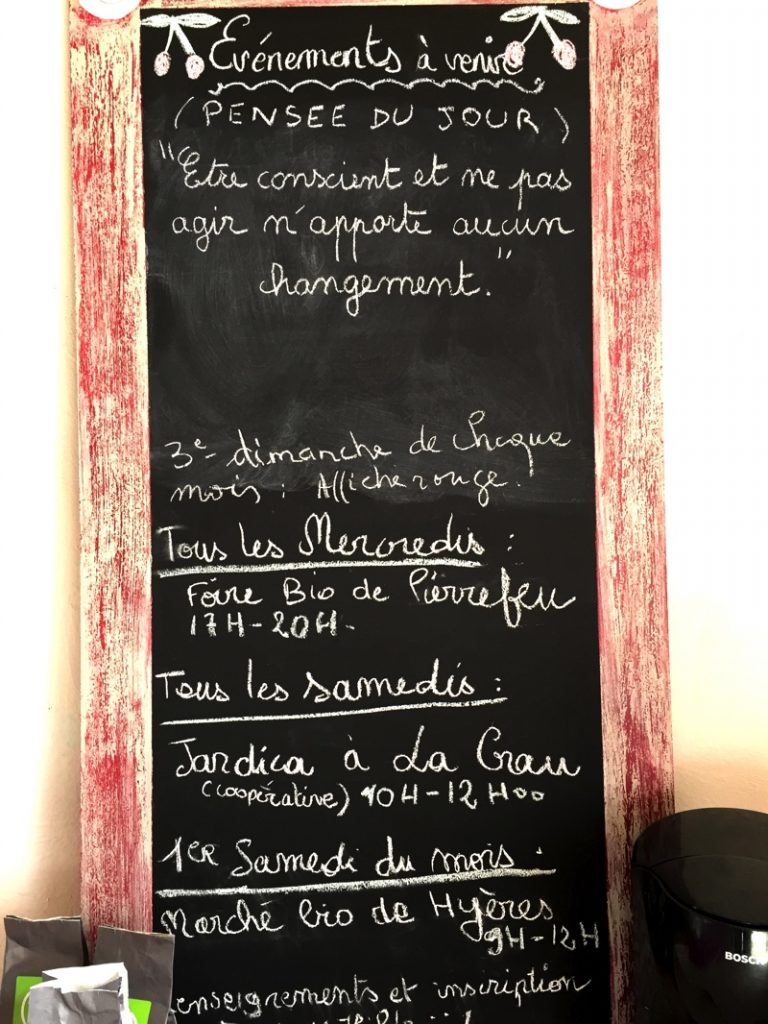 Evénements à venir
(PENSEE DU JOUR)
"Etre conscient et ne pas
agir n'apporte aucun
changement."
3e dimanche de chaque
mois : Affiche rouge.
Tous les Mercredis :
Foire Bio de Pierrefeu
17H-20H-
Tous les samedis :
Jardica à La Crau
(coopérative) 10H-12H00
1ER Samedi du mois :
Marché bio de Hyères
9H-12H
BOSCH
enseignements et inscription